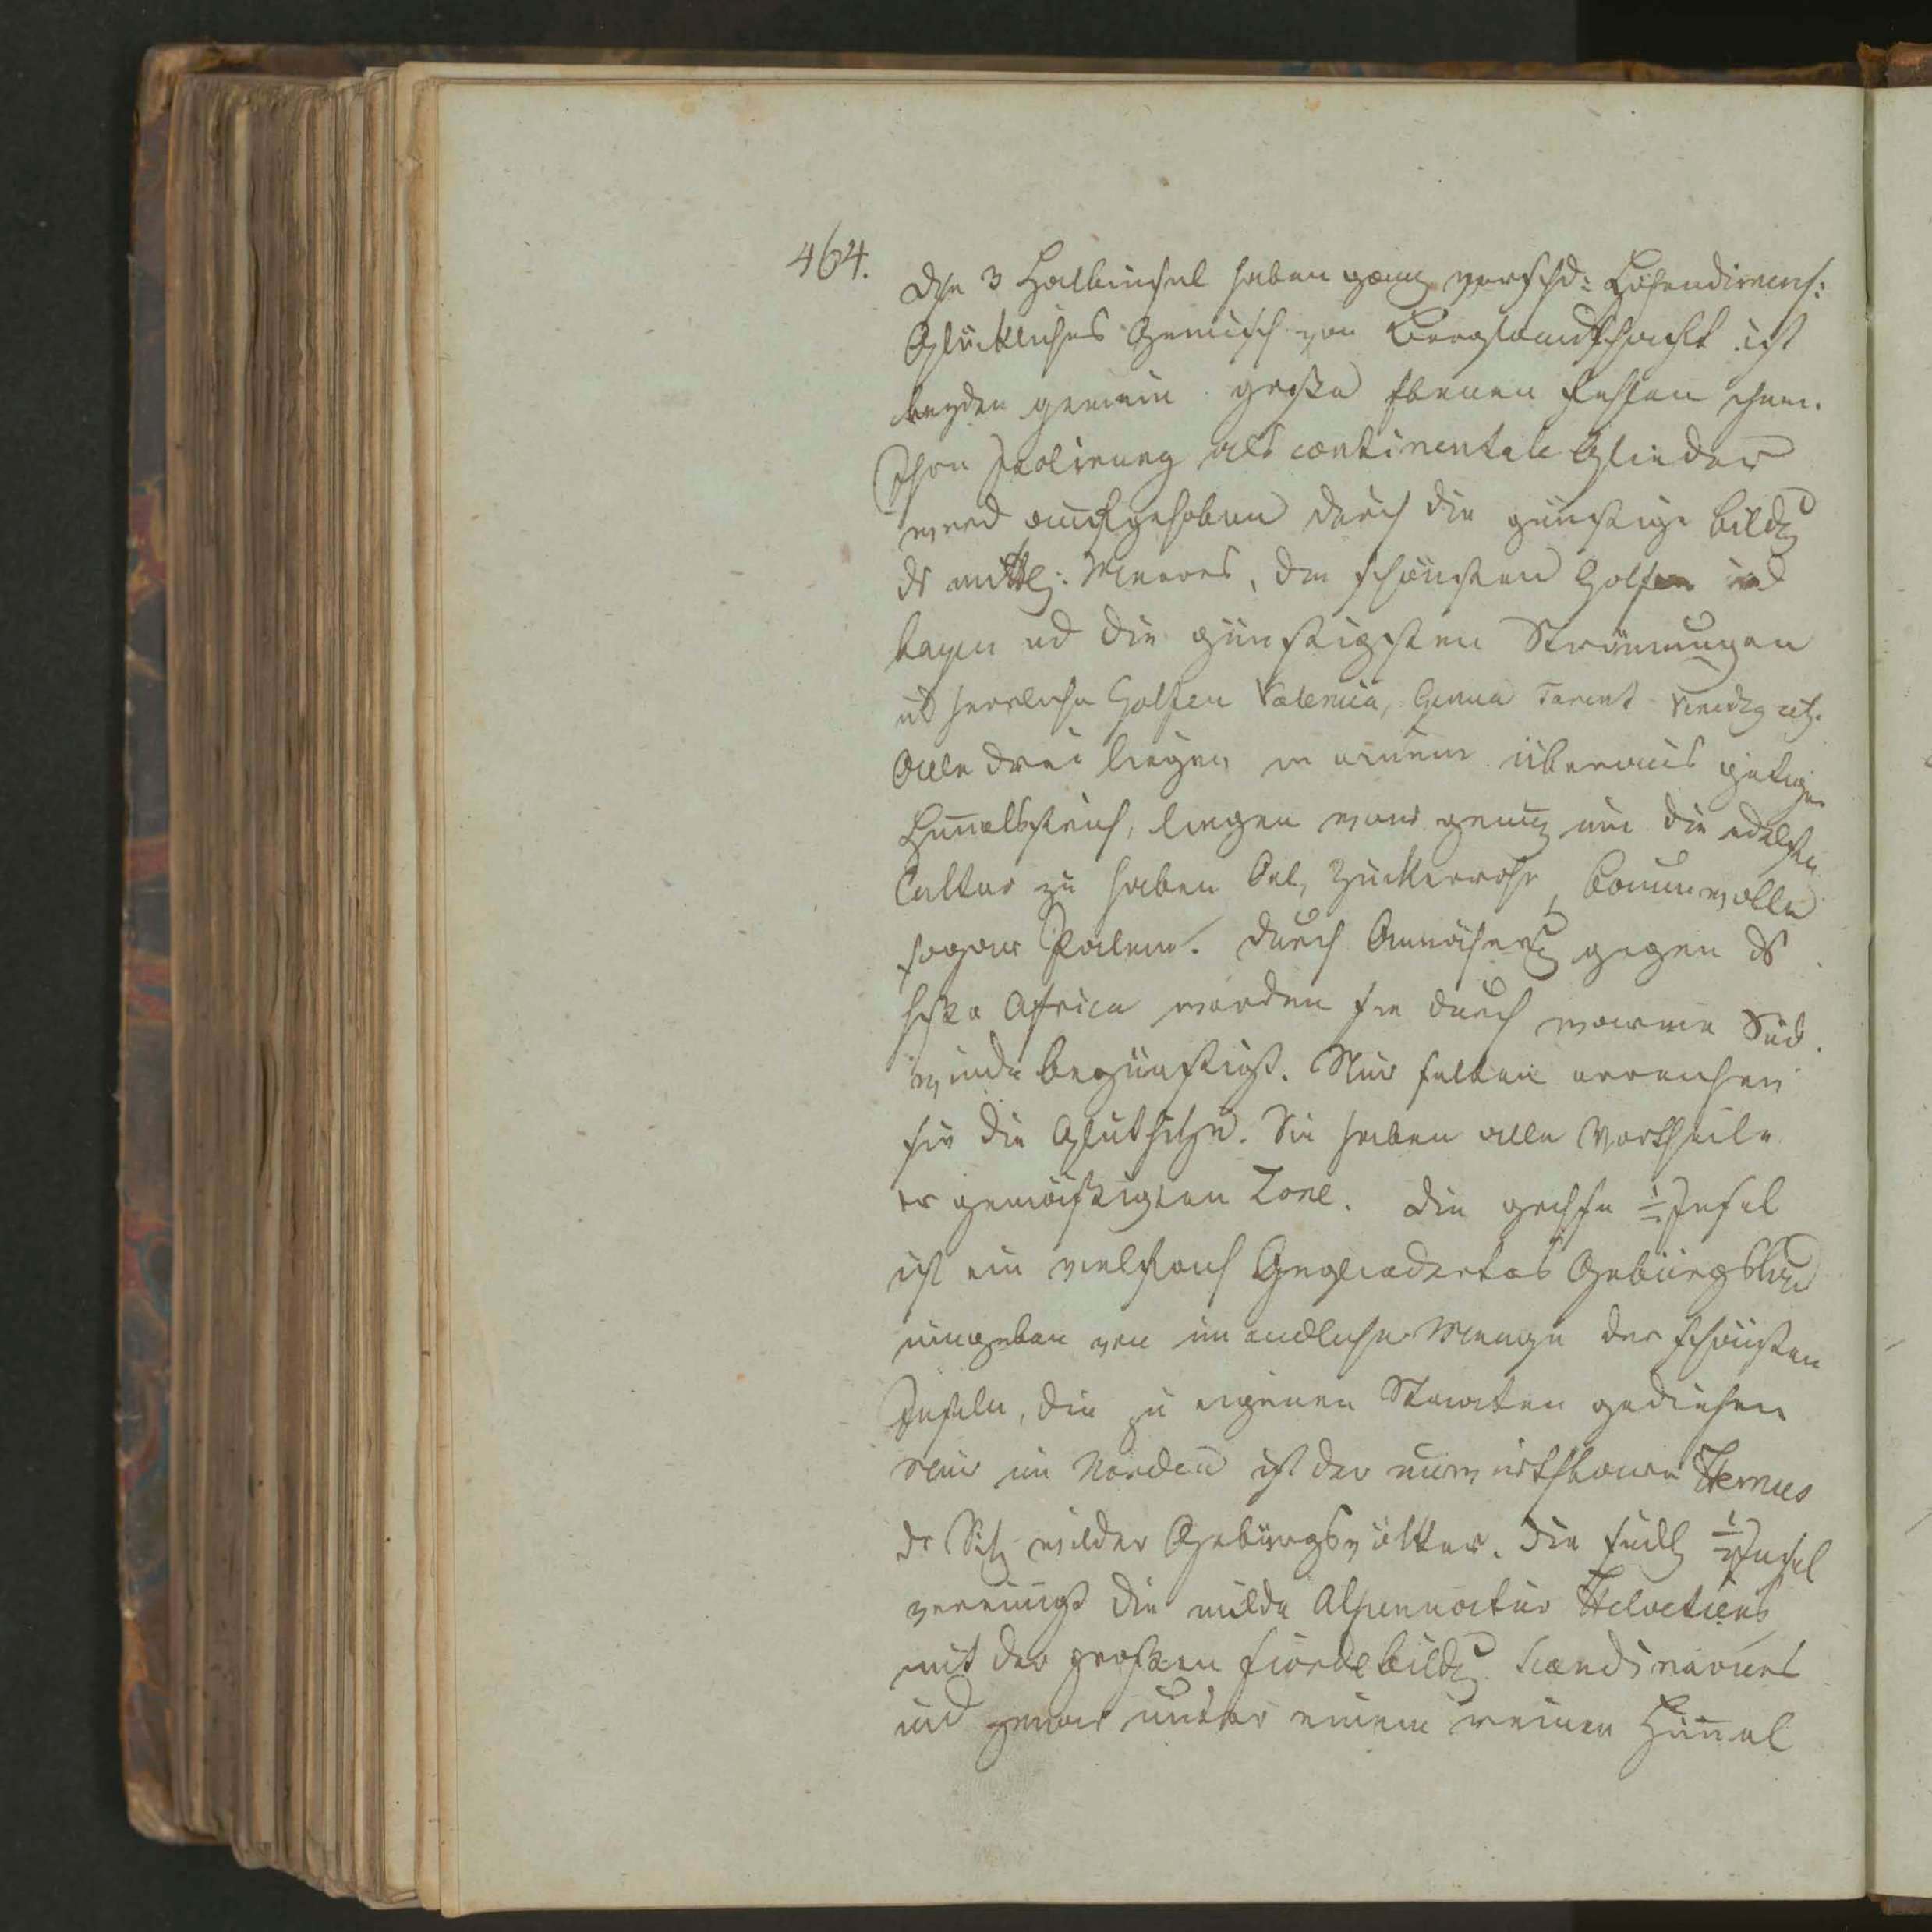 464.
Die 3 Halbinsel haben ganz verschd: Höhendimens:
Glückliches Gemisch von Berglandschaft ist
beyden gemein große Ebenen fehlen ihnen.
Ihre Isolirung als continentale Glieder
wird aufgehoben durch die günstige Bildg
ds mittl: Meeres, die schönsten Golfen und
bayen ud die günstigsten Strömungen
ud herrliche Golfen Valencia, Genua Tarent Venedig etc.
Alle drei liegen in einem überaus
Himelsstrich, liegen warm genug um die edelsten
Cultur zu haben Oel, Zuckerrohr, Baumwolle
sogar Palmen. durch Annäherg gegen ds
heiße Africa werden sie durch warme Süd
winde begünstigt. Nur selten erreichen
sie die Gluthitze. Sie haben alle Vortheile
er gemäßigten Zone. Die grchsche ½ Insel
ist ein vielfach Gegliedertes Gebürgsland
umgeben von unendlicher Menge der schönsten
Inseln, die zu eigenen Staaten gediehen
Nur im Norden ist der unwirthbare Hemus
dr Sitz wilder Gebürgsvölker. Die südl ½ Insel
vereinigt die milde Alpennatur Helvetiens
mit der großen Fiordebildg Scandinaviens
und zwar unter einem reinen Himel